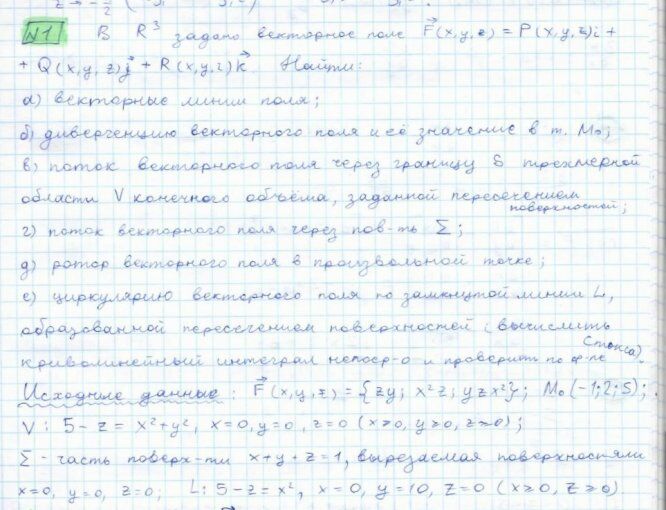 №1 В R³ задано векторное поле F⃗(x,y,z) = P(x,y,z)i +
+ Q(x,y,z)j⃗ + R(x,y,z)k⃗. Найти:
а) векторные линии поля;
б) дивергенцию векторного поля и её значение в т. M₀;
в) поток векторного поля через границу S трехмерной
области V конечного объёма, заданной пересечением
поверхностей;
г) поток векторного поля через пов-ть Σ;
д) ротор векторного поля в произвольной точке;
е) циркулярию векторного поля по замкнутой линии L,
образованной пересечением поверхностей (вычислить
криволинейный интеграл непоср-о и проверить по ф-ле Стокса).
Исходные данные: F⃗(x,y,z) = {zy; x²z; yzx²}; M₀(-1;2;5);
V: 5-z = x²+y², x=0, y=0, z=0 (x≥0, y≥0, z≥0);
Σ - часть поверх-ти x+y+z=1, вырезаемая поверхностями
x=0, y=0, z=0; L: 5-z=x², x=0, y=10, z=0 (x≥0, z≥0).